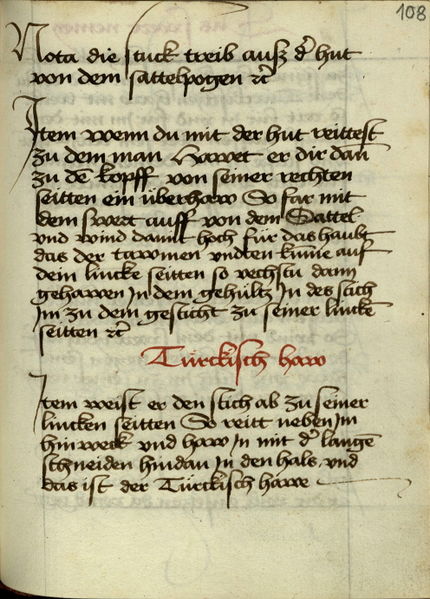 108
Nota die stuck treib ausz dˀ hut
von dem sattelpogen ꝛc
Item wenn du mit der hut reittest
zu dem man Hawet er dir dan
zu dē kopff von seiner rechten
seitten ein überhaw So far mit
dem swert auff von dem Sattel
vnd wind damit hoch für das haubt
das der dawmen vndten kume auf
dein lincke seitten so vechstu dann
gehawen In dem gehültz In des stich
Im zu dem gesicht zu seiner linckē
seitten ꝛc
Türckisch haw
Item weist er den stich ab zu seiner
lincken seitten So reitt neben Im
hinweck vnd haw In mit dˀ langē
schneiden hindan In den hals vnd
das ist der Türckisch hawe